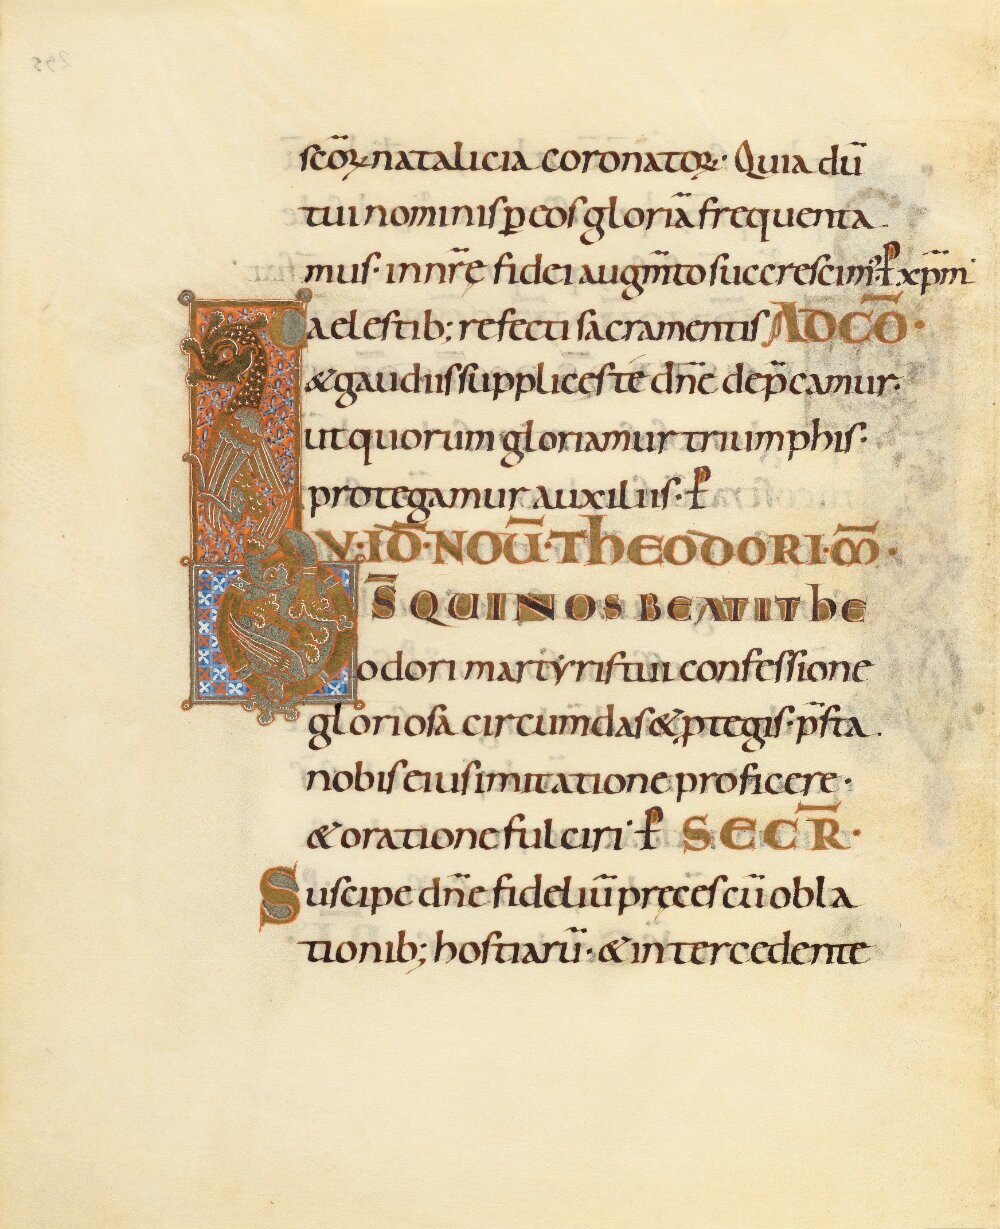 scōꝝ natalicia coronatoꝝ· Quia dū
tui nominis p̲ eos gloriā frequenta
mus· in nr̄ę fidei augm̄to succrescim᾽· P̲ xp̄m
Caelestib; refecti sacramentis AD CŌ·
& gaudiis supplices te dn̄e dep̄camur·
ut quorum gloriamur triumphis·
protegamur auxiliis· P̲
V·ID̄·NOV̄·ThEODORI·M̄·
D̄S QUI NOS BEATI ThE
odori martyris tui confessione
gloriosa circum̄das & ꝓtegis· p̄sta
nobis eius imitatione proficere·
& oratione fulciri· P̲ SECR̄·
Suscipe dn̄e fideliū pręces cū obla
tionib; hostiarū· & intercedente